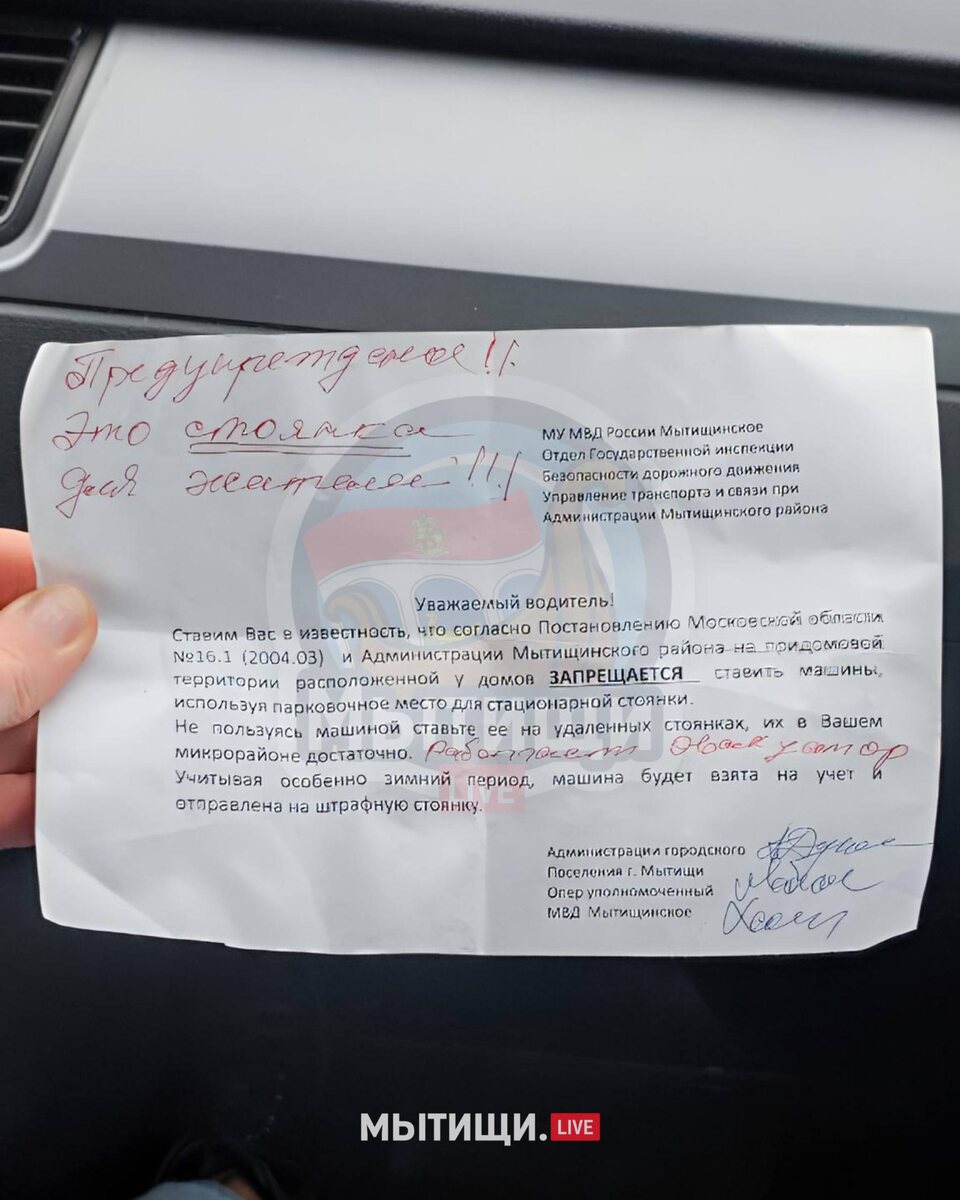 Предупреждение!!
Это стоянка
для жителей!!!
МУ МВД России Мытищинское
Отдел Государственной инспекции
Безопасности дорожного движения
Управление транспорта и связи при
Администрации Мытищинского района
Уважаемый водитель!
Ставим Вас в известность, что согласно Постановлению Московской области
№16.1 (2004.03) и Администрации Мытищинского района на придомовой
территории расположенной у домов ЗАПРЕЩАЕТСЯ ставить машины,
используя парковочное место для стационарной стоянки.
Не пользуясь машиной ставьте ее на удаленных стоянках, их в Вашем
микрорайоне достаточно. Работает Эвакуатор
Учитывая особенно зимний период, машина будет взята на учет и
отправлена на штрафную стоянку.
Администрации городского
Поселения г. Мытищи
Опер уполномоченный
МВД Мытищинское
МЫТИЩИ
LIVE
МЫТИЩИ. LIVE